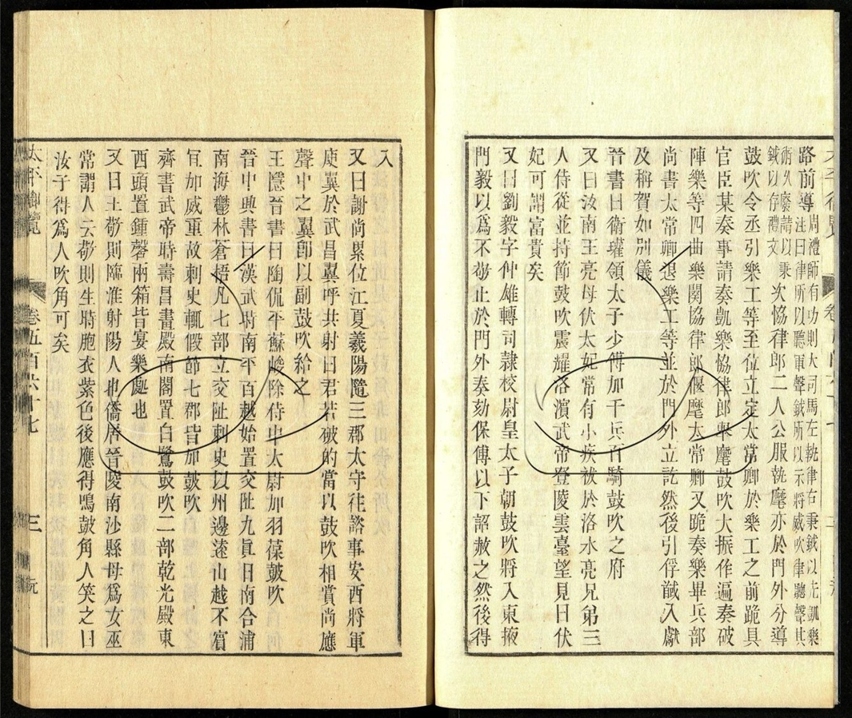 路前導周禮師有功則大司馬左執律右秉鉞以先凱樂
注曰律所以聽軍聲鉞所以示將威吹律聽聲其
術久廢請以秉
鉞以存禮文
次協律郎二人公服執麾亦於門外分導
鼓吹令丞引樂工等至位立定太常卿於樂工之前跪具
官臣某奏事請奏凱樂協律郎舉麾鼓吹大振作遍奏破
陣樂等四曲樂闋協律郎偃麾太常卿又跪奏樂畢兵部
尚書太常卿退樂工等並於門外立訖然後引俘馘入獻
及稱賀如別儀
晉書曰衛瓘領太子少傅加千兵百騎鼓吹之府
又曰汝南王亮母伏太妃常有小疾祓於洛水亮兄弟三
人侍從並持節鼓吹震耀洛濱武帝登陵雲臺望見曰伏
妃可謂富貴矣
又曰劉毅字仲雄轉司隸校尉皇太子朝鼓吹將入東掖
門毅以爲不敬止於門外奏劾保傅以下詔赦之然後得
入
又曰謝尚累位江夏義陽隨三郡太守往諮事安西將軍
庾翼於武昌翼呼共射曰君若破的當以鼓吹相賞尚應
聲中之翼卽以副鼓吹給之
王隱晉書曰陶侃平蘇峻除侍中太尉加羽葆鼓吹
晉中興書曰漢武時南平百越始置交阯九眞日南合浦
南海鬱林蒼梧凡七郡立交阯刺史以州邊遠山越不賓
宜加威重故刺史輒假節七郡皆加鼓吹
齊書武帝時壽昌書殿南閣置白鷺鼓吹二部乾光殿東
西頭置鍾磬兩箱皆宴樂處也
又曰王敬則臨淮射陽人也僑居晉陵南沙縣母爲女巫
常謂人云敬則生時胞衣紫色後應得鳴鼓角人笑之曰
汝子得爲人吹角可矣
太平御覽 卷五百六十七 三